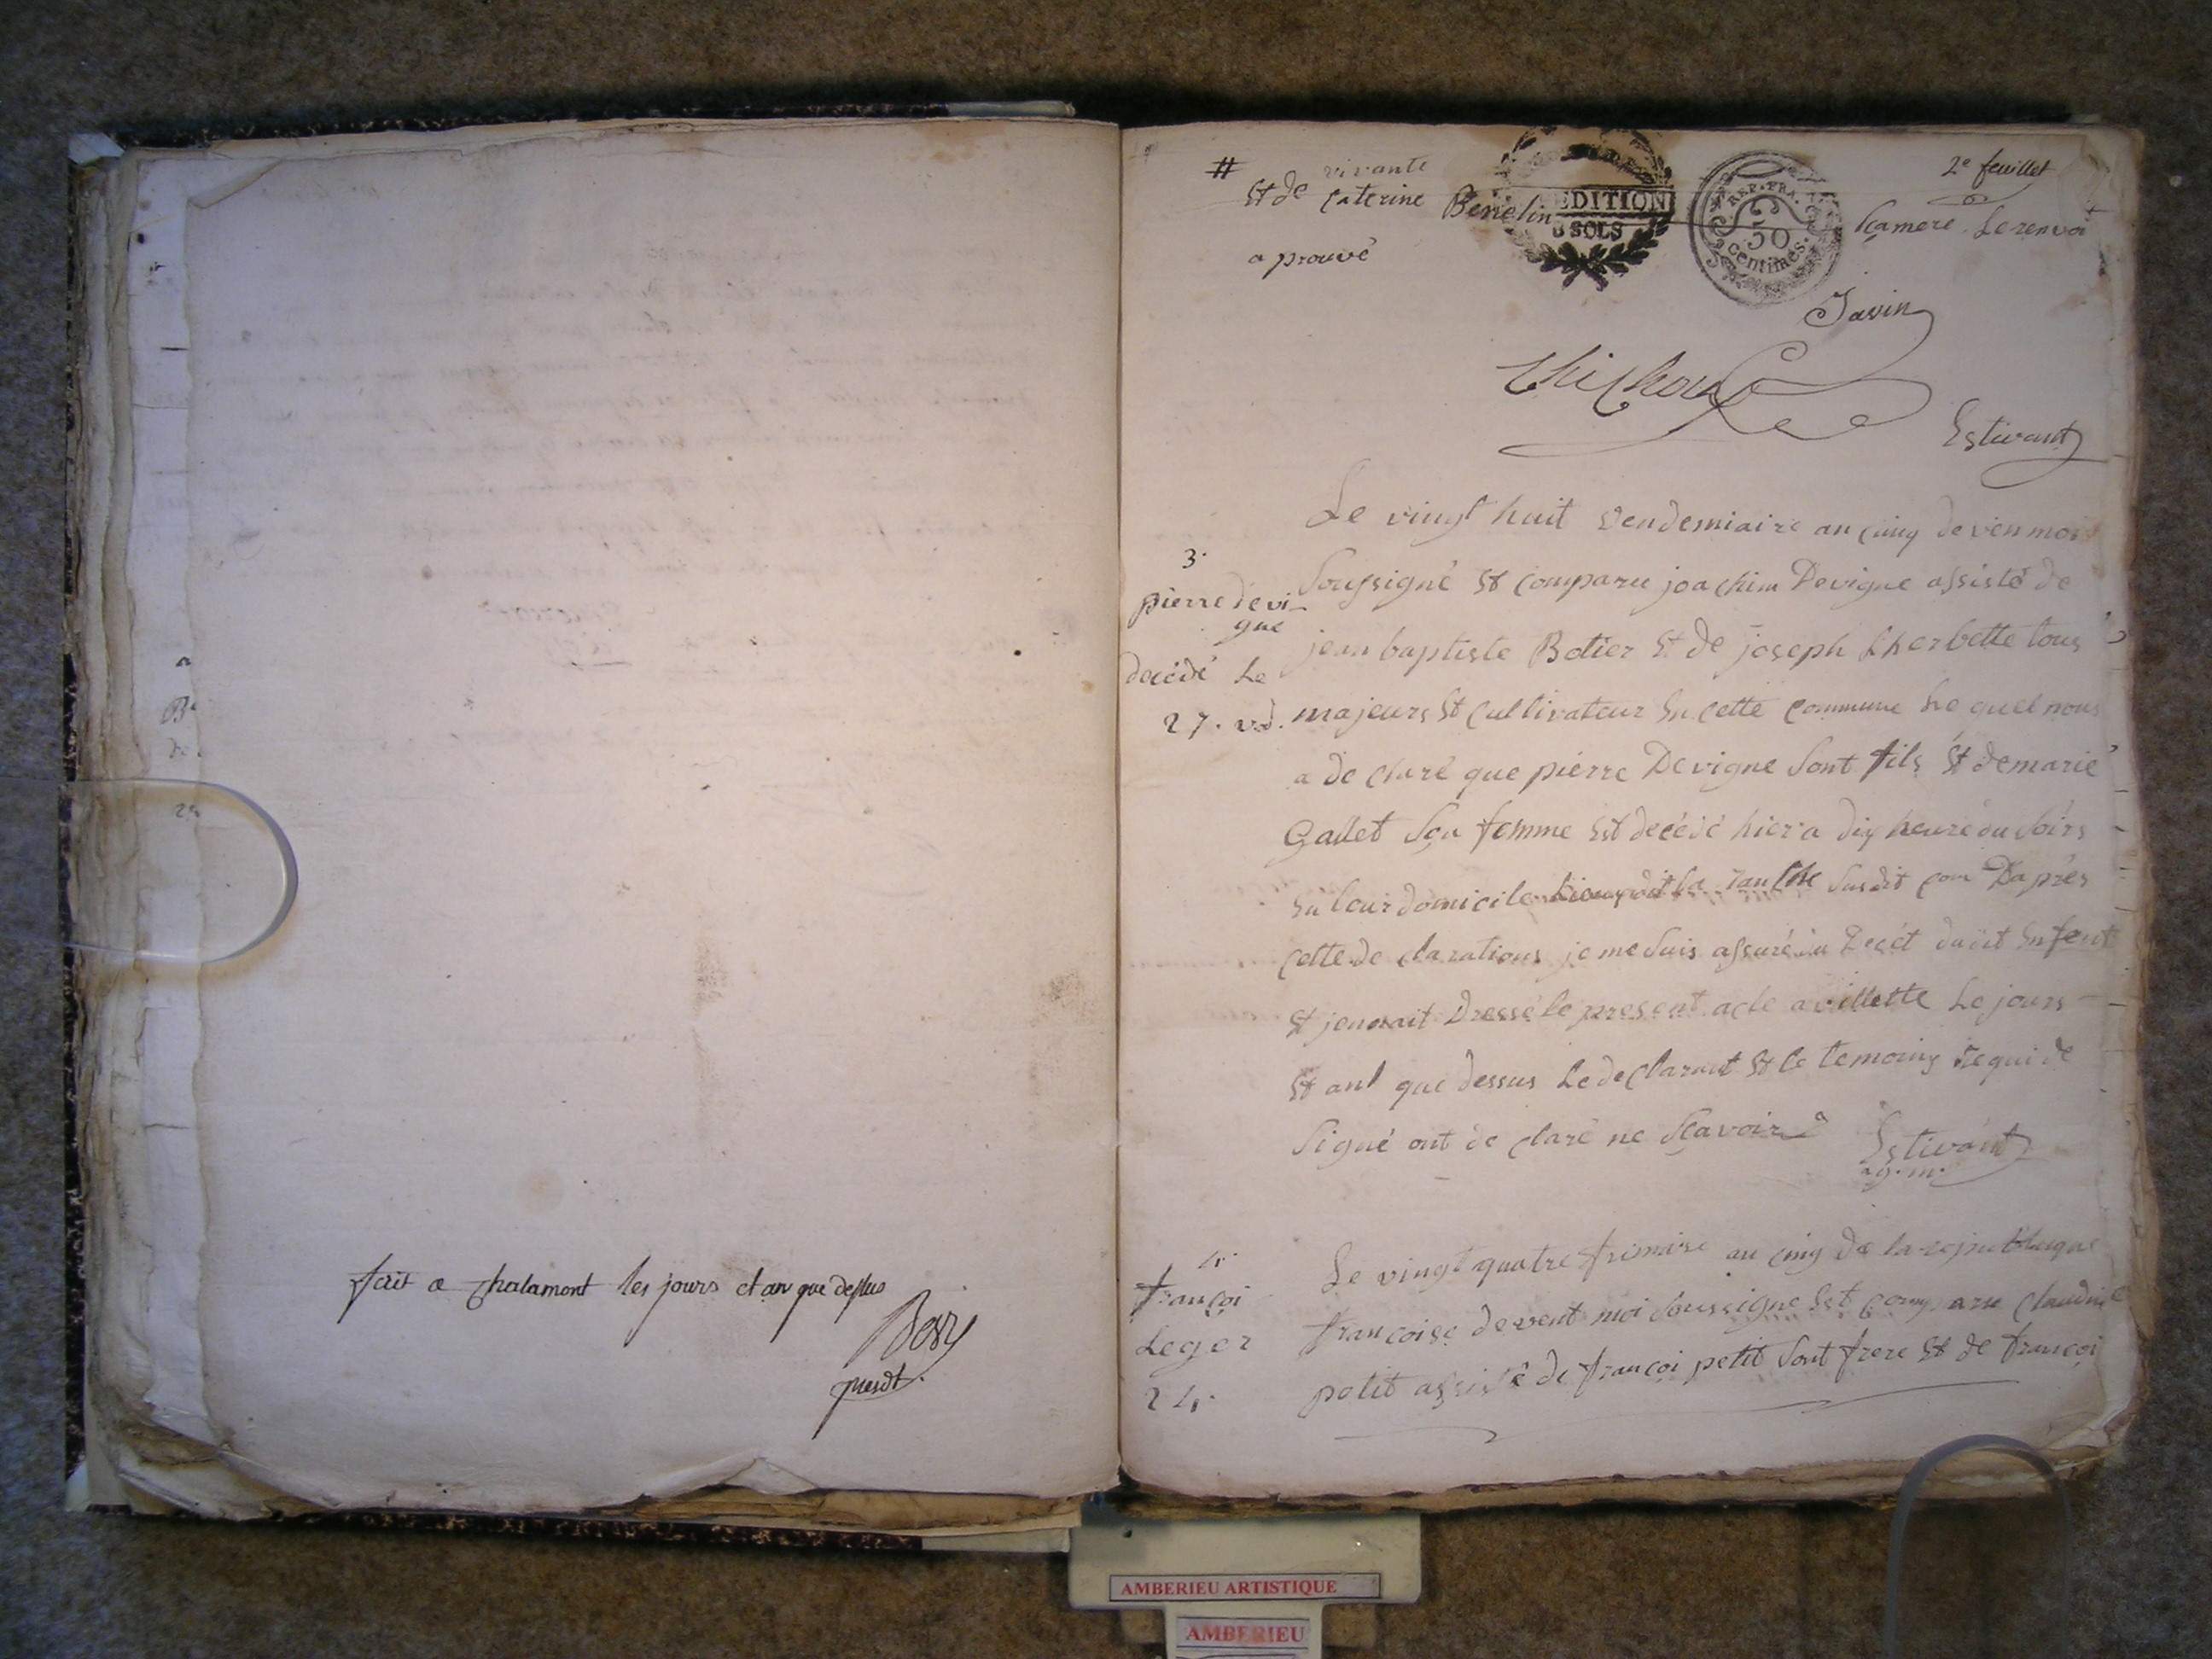 fait a Chalamont les jours et an que dessus
presdt.
2e feuillet
#
vivante
Et de Caterine Benelin
EDITION
SOLS
REP. FRA.
50
centimes.
Sa mere Le renvoi
a prouvé
Javin
Estivant
Le vingt huit vendemiaire an cinq deven moi
3.
pierre devi-
gne
decedé Le
27. vd.
soussigné Et comparu joachim Devigne assisté de
jean baptiste Botier Et de joseph Lherbette tous
majeurs Et Cultivateur En cette commune Le quel nous
a de claré que pierre Devigne sont fils Et de marie
Gallet Sa femme Est decédé hier a dix heure du soirs
En leur domicile susdit com D'aprés
cette de clarations je me suis assuré du Decét dudit Enfent
Et jen ait Dressé le present acte a villette Le jours
Et ant que dessus Le declarant Et le temoins requi de
signé ont de claré ne Sçavoir
Estivant
ag. m.
4.
françoi
Leger
24.
Le vingt quatre frimaire an cinq de la republique
françoise devent moi soussigne Est comparu claudine
petit assisté de françoi petit sont frere Et de françoi
AMBERIEU ARTISTIQUE
AMBERIEU